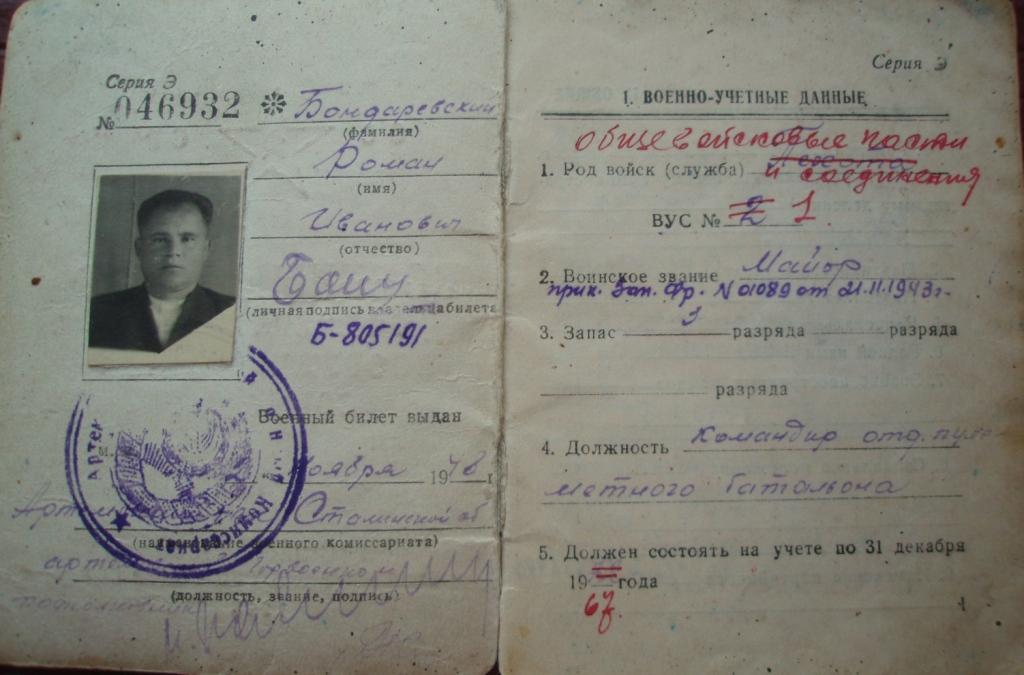 Серия Э
№ 046932
Бондаревский
(фамилия)
Роман
(имя)
Иванович
(отчество)
(личная подпись владельца билета)
Б-805191
Военный билет выдан
ноября 1948 г
Сталинской об
(наименование военного комиссариата)
(должность, звание, подпись)
Серия Э
I. ВОЕННО-УЧЕТНЫЕ ДАННЫЕ
общевойсковые части
1. Род войск (служба) пехота и соединения
ВУС № 2 1
2. Воинское звание Майор
прик. Зап. Фр. N 01089 от 21.11.1943г.
3. Запас 3 разряда разряда
разряда
4. Должность Командир отд. пуле-
метного батальона
5. Должен состоять на учете по 31 декабря
19 года
67.